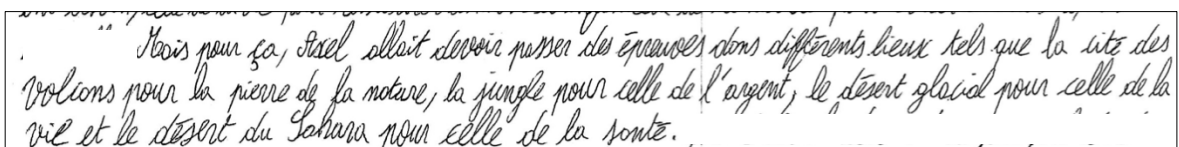 Mais pour ça, Axel allait devoir passer des épreuves dans différents lieux tels que la cité des
volcans pour la pierre de la nature, la jungle pour celle de l'argent, le désert glacial pour celle de la
vie et le désert du Sahara pour celle de la santé.